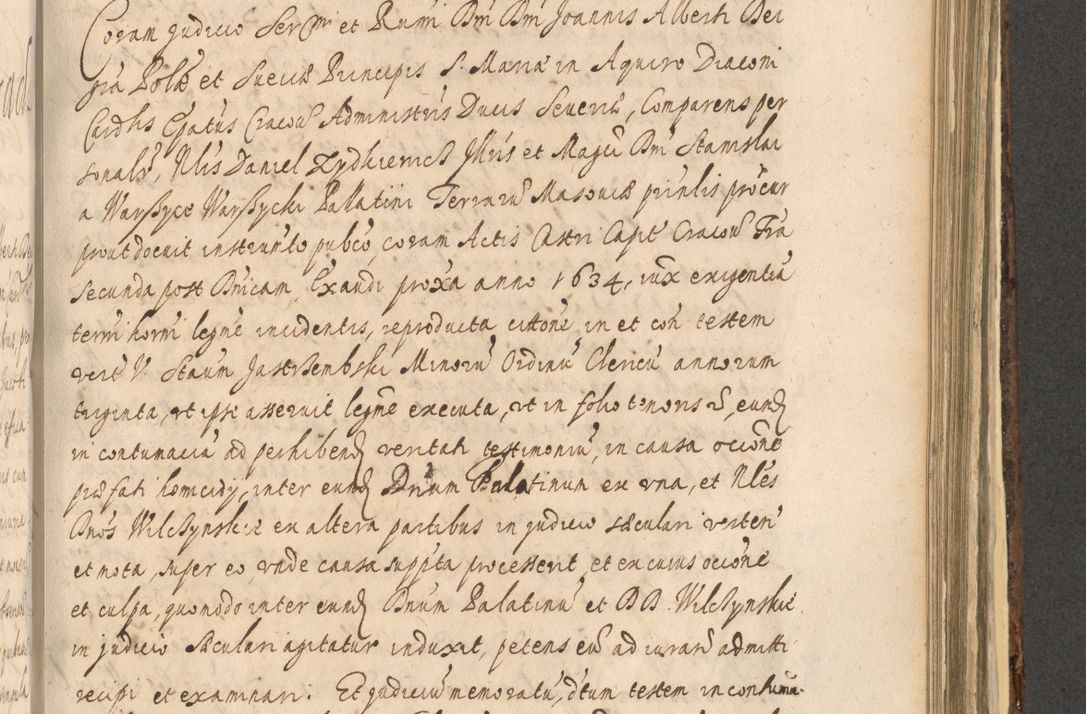 Coram judicio Sermi et Rmi Dni Dni Joannis Alberti Dei
gra Polæ et Sueciæ Principis S. Mariæ in Aquiro Diaconi
Cardlis Epatus Cracou Administris Ducis Severiæ, Comparens per
sonalr, Nlis Daniel Zydkiewicz Illris et Magci Dni Stanislai
a Warszyce Warszycki Pallatini Terraru Masouiæ prinlis procur
prout docuit instrumto pubco, coram Actis Castri Capit Cracou Fra
secunda post Dnicam Exaudi proxa anno 1634, iux exigentia
termi horni legne incidentis, reproducta cittone in et con testem
vert V. Staum Jastrzembski Minoru Ordinu Clericu annorum
triginta, ut ipse asseruit legne executa, ut in folio tenoris s, eund
in contumacia ad perhibend veritati testimoniu, in causa occone
præfati homicidy, inter eund Dnum Palatinum ex vna, et Nles
Dnos Wilczynskie ex altera partibus in judicio sæculari verten
et mota, super eo, vnde causa suppta processerit et ex cuius occone
et culpa, quomodo inter eund Dnum Palatinu et DD. Wilczynskie
in judicio sæculari agitatur induxit, petens eu ad iurand admitti
recipi et examinari. Et judiciu memoratu, dtum testem in contuma